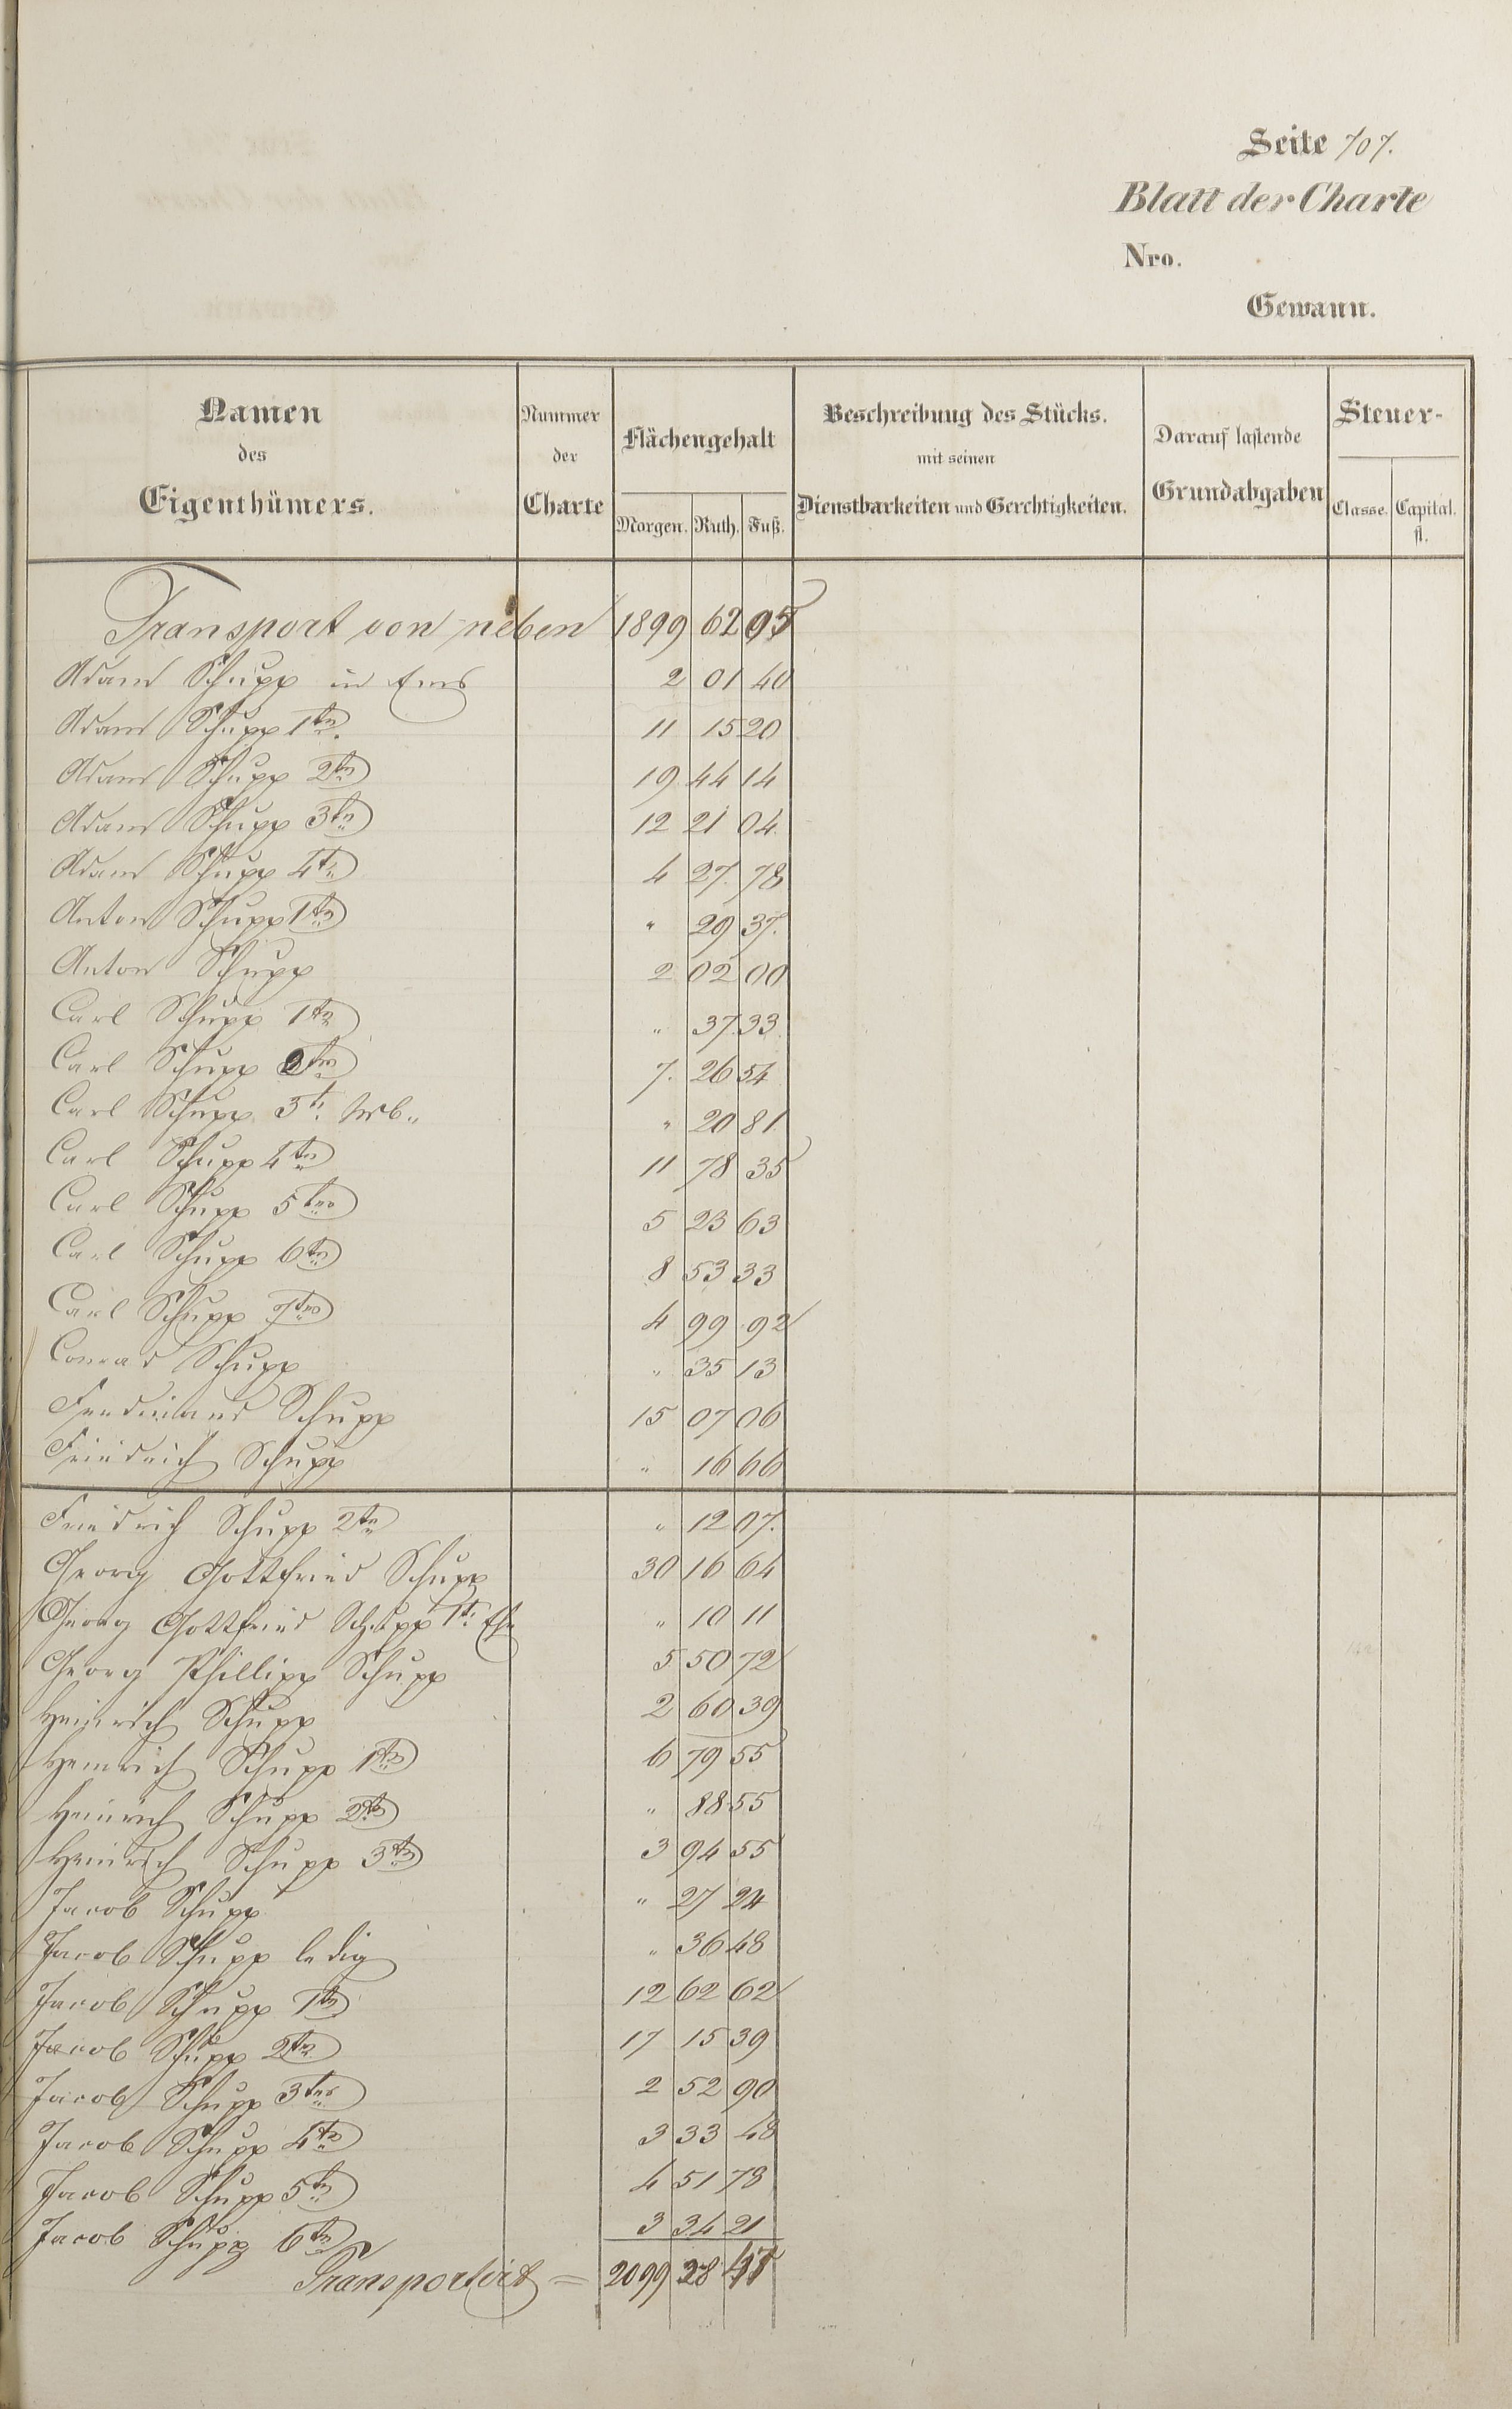 Seite 707.
Blatt der Charte
Nro.
Gewann.
Namen
des
Eigenthümers.
Nummer
der
Charte
Flächengehalt
Morgen. Ruth. Fuß.
Beschreibung des Stücks.
mit seinen
Dienstbarkeiten und Gerechtigkeiten.
Darauf lastende
Grundabgaben
Steuer-
Classe. Capital.
fl.
Transport von neben 1899 62 05
Adam Schupp in Ems 2 01 40
Adam Schupp 1ter 11 15 20
Adam Schupp 2ter 19 44 14
Adam Schupp 3ter 12 21 04
Adam Schupp 4ter 4 27 78
Anton Schupp 1ter " 29 37.
Anton Schupp 2 02 00
Carl Schupp 1ter " 37 33
Carl Schupp 2ter 7. 26 54
Carl Schupp 3t. Wb.. " 20 81
Carl Schupp 4ter 11 78 35
Carl Schupp 5ter 5 23 63
Carl Schupp 6ter 8 53 33
Carl Schupp 7ter 4 99 92
Conrad Schupp " 35 13
Ferdinand Schupp 15 07 06
Friedrich Schupp " 16 66
Friedrich Schupp 2ter " 12 07.
Georg Gottfried Schupp 30 16 64
Georg Gottfried Schupp 1t. Ehe " 10 11
Georg Phillipp Schupp 5 50 72
Heinrich Schupp 2 60 39
Heinrich Schupp 1ter 6 79 55
Heinrich Schupp 2ter " 88 55
Heinrich Schupp 3ter 3 94 55
Jacob Schupp " 27 24
Jacob Schupp ledig " 36 48
Jacob Schupp 1ter 12 62 62
Jacob Schupp 2ter 17 15 39
Jacob Schupp 3ter 2 52 90
Jacob Schupp 4ter 3 33 48
Jacob Schupp 5ter 4 51 78
Jacob Schupp 6ter 3 34 21
Transportirt = 2099 28 47